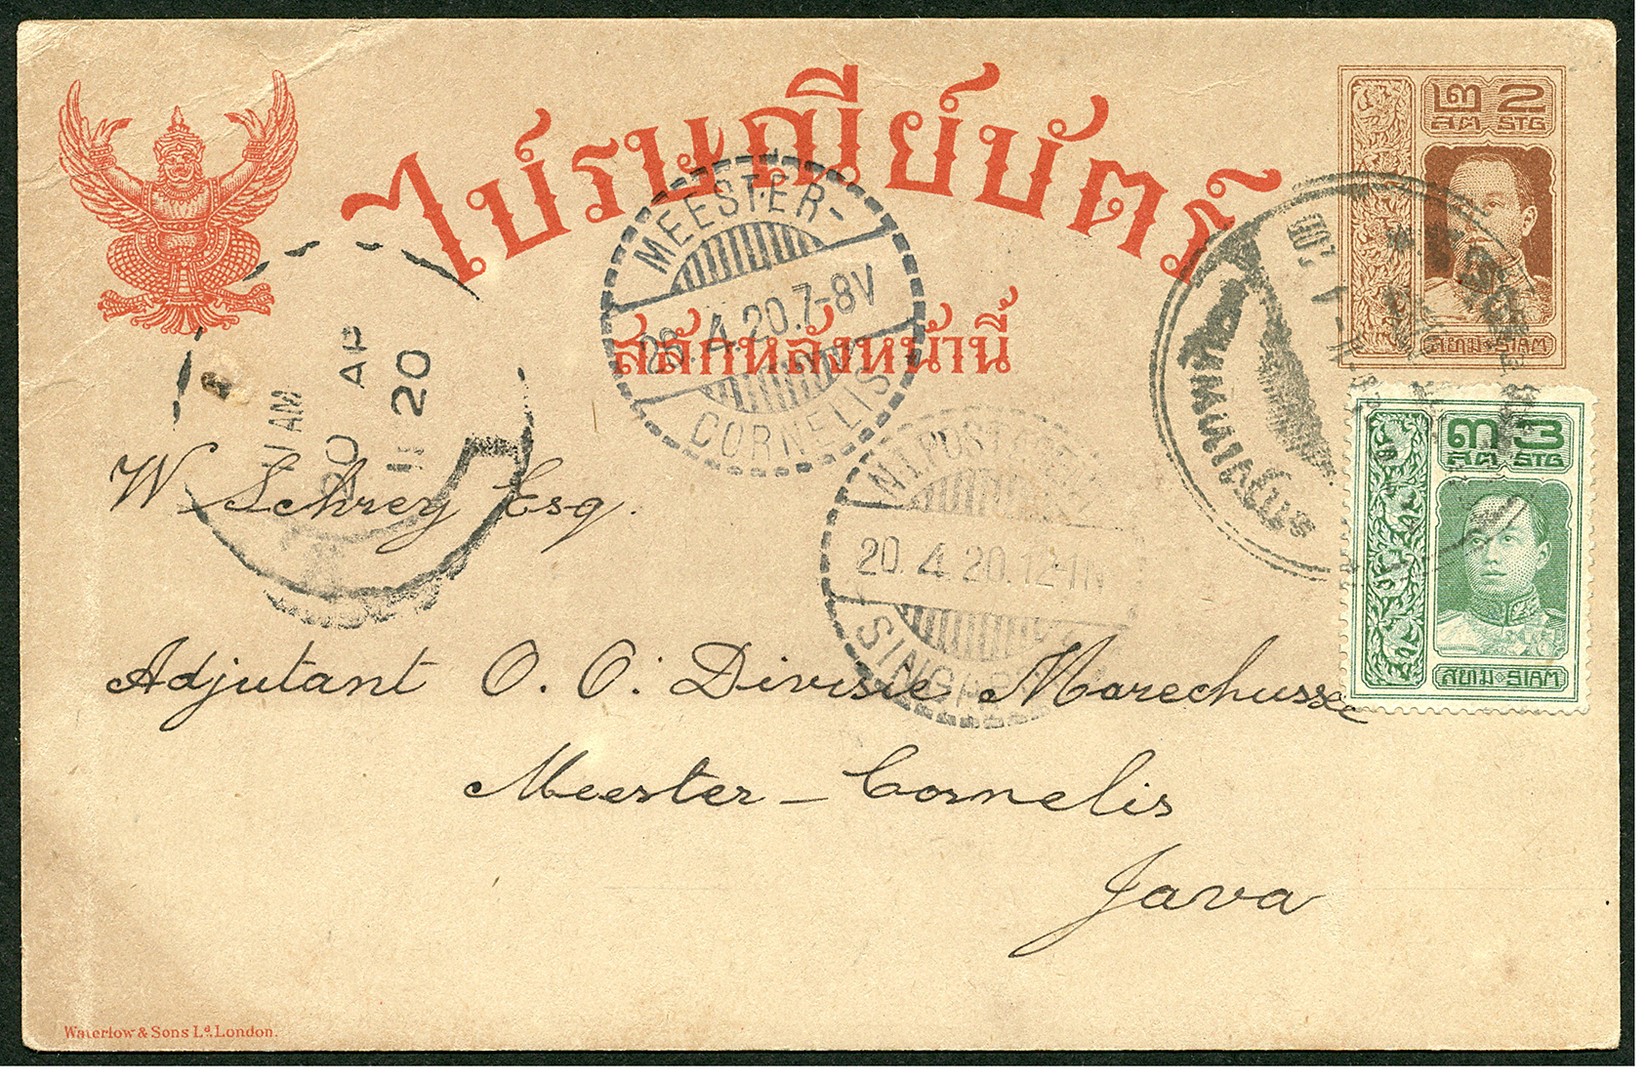 ไปรษณีย์บัตร์
สลักหลังหน้านี้
๒ 2
สต STG
สยาม
SIAM
๓ 3
สต STG
สยาม SIAM
MEESTER-
26.4.20.7-8V
CORNELIS
N.I. POST
20.4.20.12-1N
SINGAP
AM
20 AP
20
W Schrey Esq.
Adjutant O. O. Divisie Marechussee
Meester - Cornelis
Java
Waterlow & Sons Ld. London.